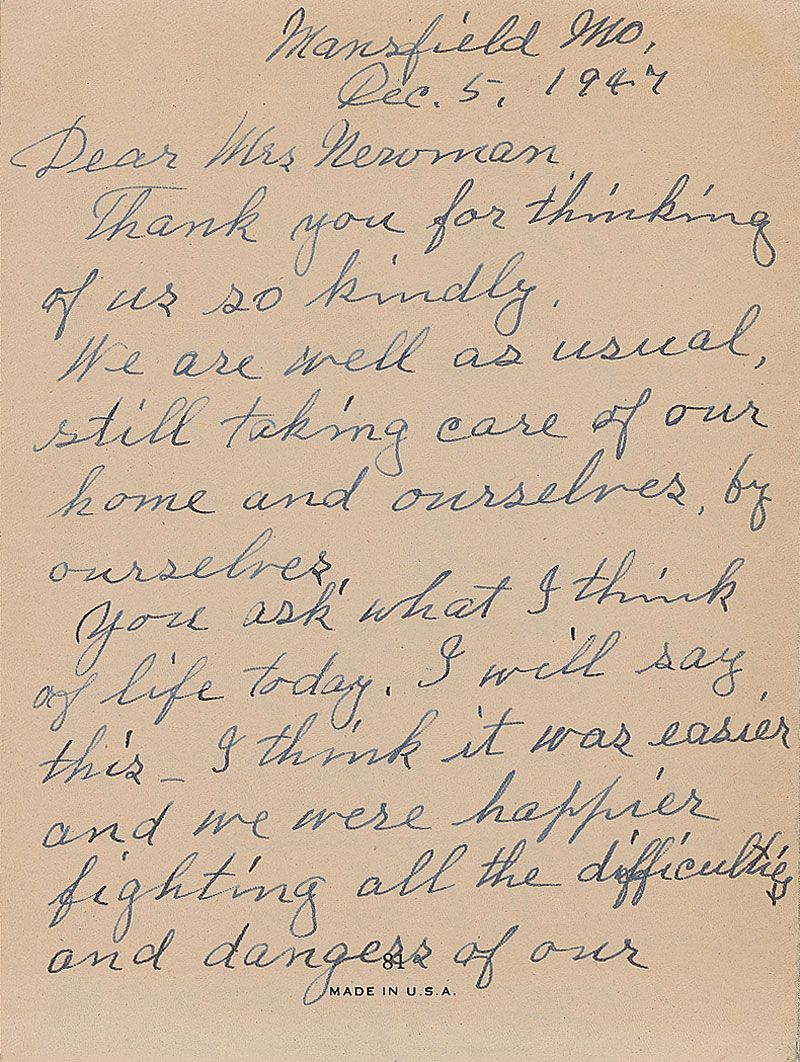 Mansfield Mo.
Dec. 5, 1947
Dear Mrs Newman
Thank you for thinking
of us so kindly.
We are well as usual,
still taking care of our
home and ourselves, by
ourselves.
You ask what I think
of life today. I will say
this – I think it was easier
and we were happier
fighting all the difficulties
and dangers of our
81
MADE IN U.S.A.